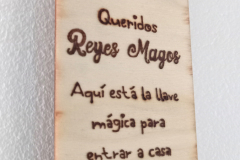 Queridos
Reyes Magos
Aquí está la llave
mágica para
entrar a casa